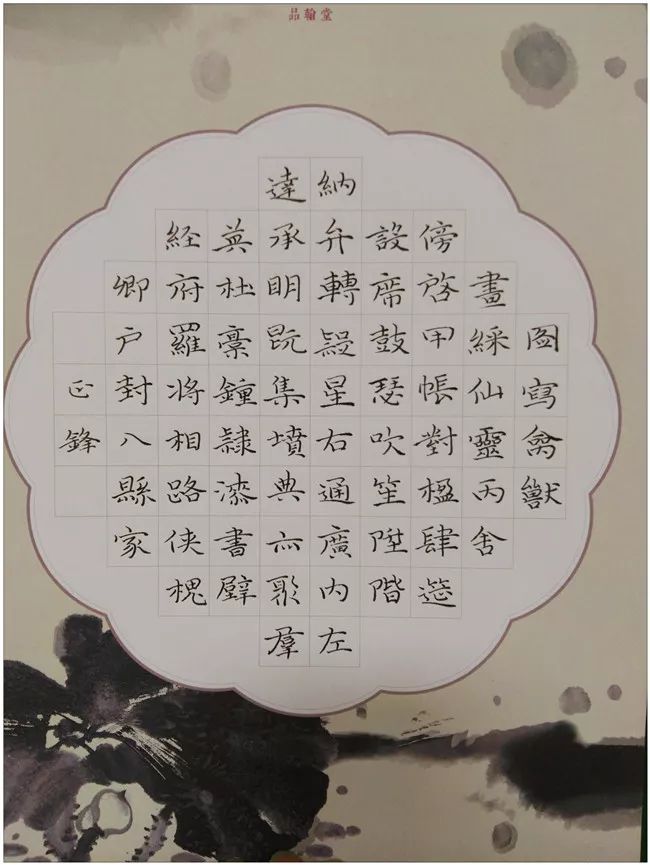 品翰堂
圖寫禽獸
畫綵仙靈丙舍
傍啓甲帳對楹肆筵
設席鼓瑟吹笙陞階
納弁轉疑星右通廣内左
達承明既集墳典亦聚群
英杜稾鍾隸漆書壁
経府羅将相路侠槐
卿户封八縣家
正鋒